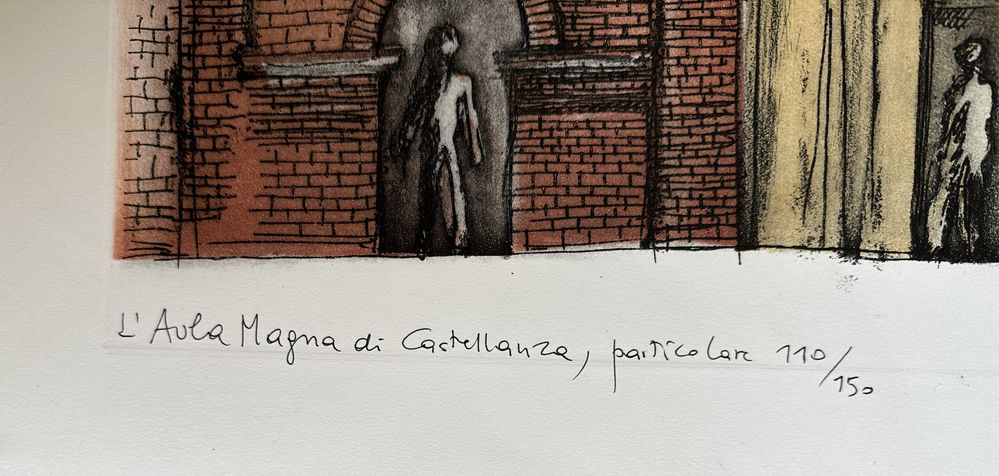 L'Aula Magna di Castellanza, particolare 110/150